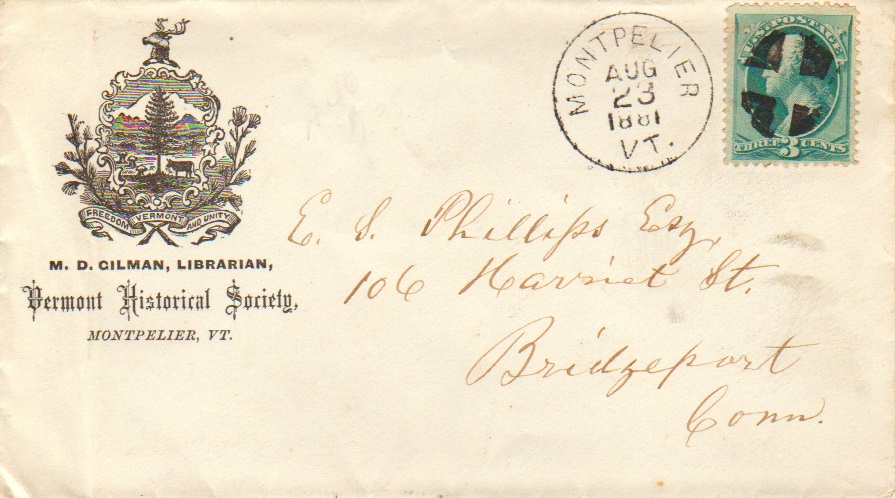 FREEDOM VERMONT AND UNITY
M. D. GILMAN, LIBRARIAN,
Vermont Historical Society,
MONTPELIER, VT.
MONTPELIER
AUG
23
1881
VT.
U.S. POSTAGE
THREE 3 CENTS
E. S. Phillips Esq,
106 Harriet St.
Bridgeport
Conn.